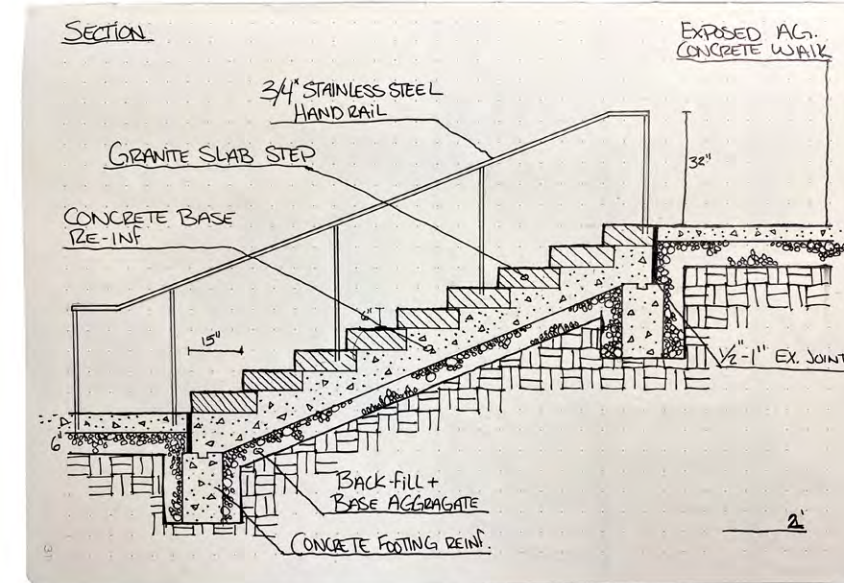 SECTION
EXPOSED AG.
CONCRETE WALK
3/4" STAINLESS STEEL
HAND RAIL
GRANITE SLAB STEP
32"
CONCRETE BASE
RE-INF
6"
15"
1/2"-1" EX. JOINT
6"
BACK-FILL +
BASE AGGRAGATE
2'
CONCRETE FOOTING REINF.
31